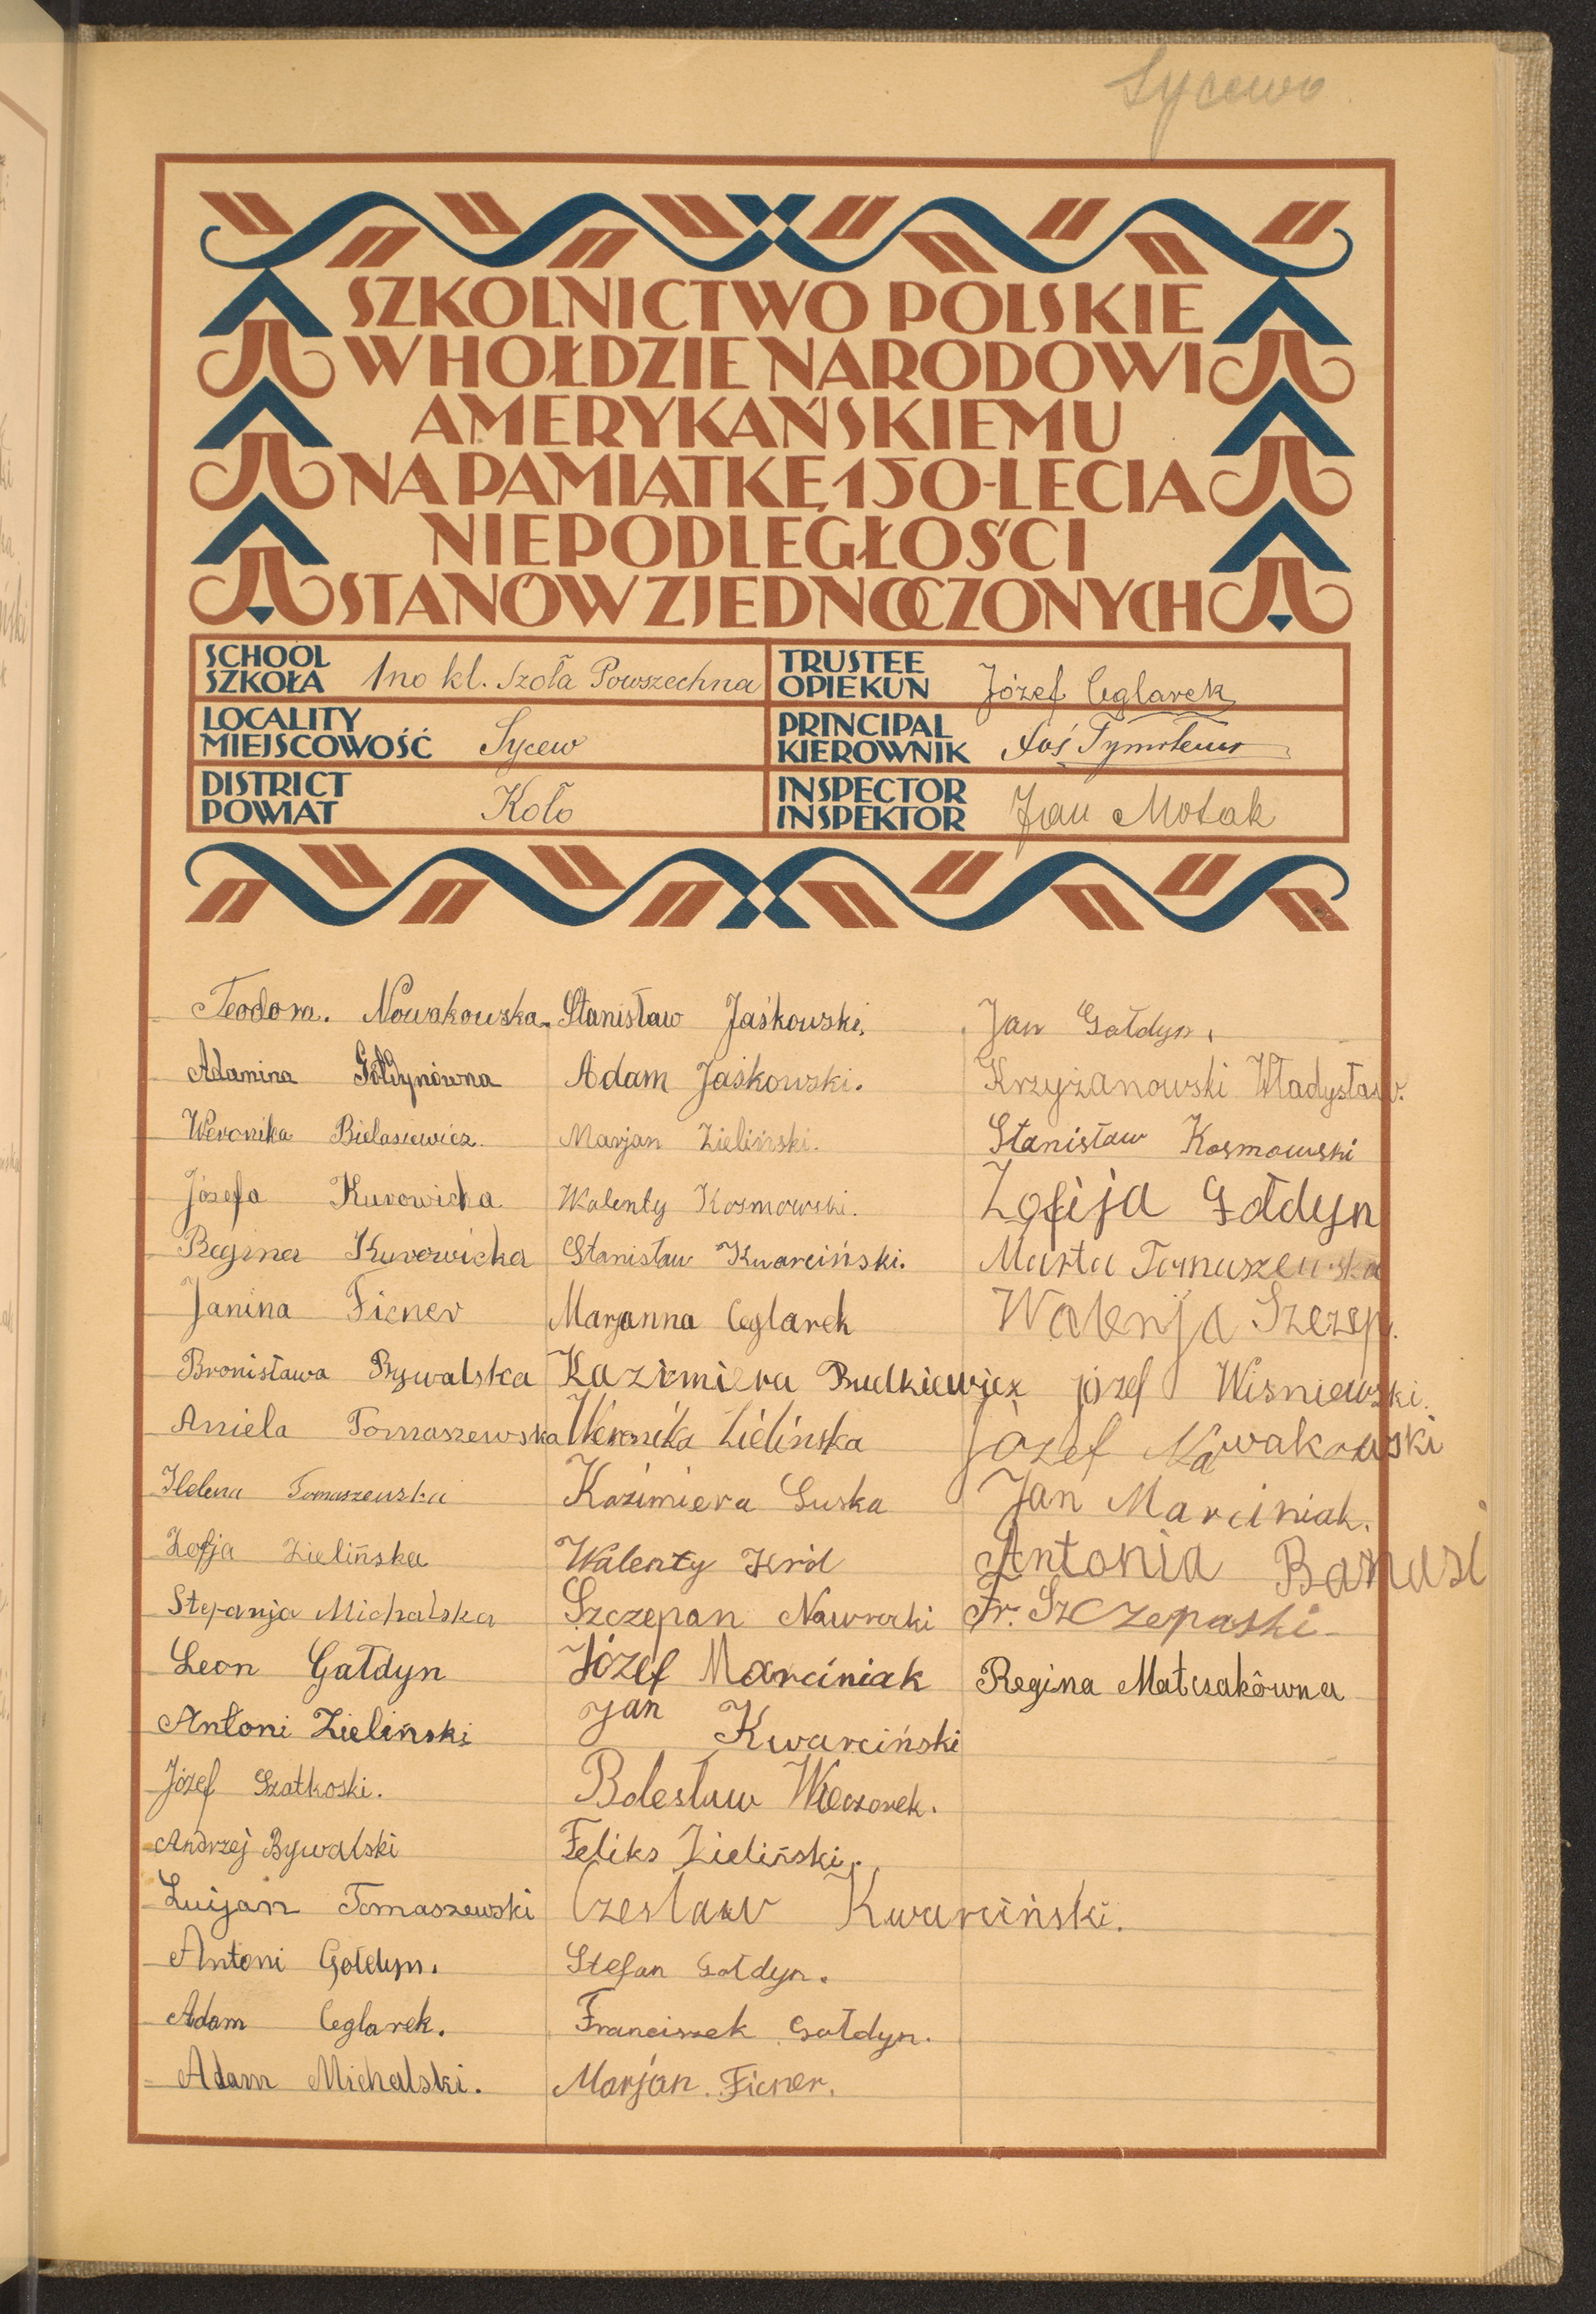 Sycewo
SZKOLNICTWO POLSKIE
W HOŁDZIE NARODOWI
AMERYKAŃSKIEMU
NA PAMIĄTKĘ 150-LECIA
NIEPODLEGŁOŚCI
STANÓW ZJEDNOCZONYCH
SCHOOL
SZKOŁA
1no kl. Szoła Powszechna
TRUSTEE
OPIEKUN
Józef Ceglarek
LOCALITY
MIEJSCOWOŚĆ
Sycew
PRINCIPAL
KIEROWNIK
DISTRICT
POWIAT
Koło
INSPECTOR
INSPEKTOR
Jan Motak
Teodora. Nowakowska.
Adamina Gołdynówna
Weronika Bielasiewicz.
Józefa Kurowicka
Regina Kurowicka
Janina Ficner
Bronisława Rywalska
Aniela Tomaszewska
Helena Tomaszewska
Zofja Zielińska
Stefanja Michalska
Leon Gałdyn
Antoni Zieliński
Józef Szatkoski.
Andrzej Bywalski
Lucjan Tomaszewski
Antoni Gołdyn.
Adam Ceglarek.
Adam Michalski.
Stanisław Jaśkowski.
Adam Jaśkowski.
Marjan Zieliński.
Walenty Kosmowski.
Stanisław Kwarciński.
Marjanna Ceglarek
Kazimiera Budkiewicz
Weronika Zielińska
Kazimiera Suska
Walenty Król
Szczepan Nawrocki
Józef Marciniak
Jan Kwarciński
Bolesław Wieczorek.
Feliks Zieliński.
Czesław Kwarciński.
Stefan Gołdyn.
Franciszek Gołdyn.
Marjan. Ficner.
Jan Gołdyn.
Krzyżanowski Władysław.
Stanisław Kosmowski
Zofija Gołdyn
Marta Tomaszewska
Walerja Szczep.
Józef Wisniewski.
Józef Nowakowski
Jan Marciniak.
Antonia Banasi
Fr. Szczepaski
Regina Matusakôwna